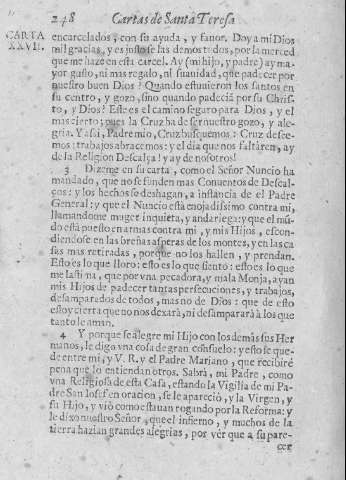 248 Cartas de Santa Teresa
CARTA XXVII.
encarcelados, con su ayuda, y fauor. Doy a mi Dios
mil gracias, y es justo se las demos todos, por la merced
que me haze en esta carcel. Ay (mi hijo, y padre) ay ma-
yor gusto, ni mas regalo, ni suauidad, que padecer por
nuestro buen Dios? Quando estuuieron los santos en
su centro, y gozo, sino quando padeciã por su Chris-
to, y Dios? Este es el camino seguro para Dios, y el
mas cierto; pues la Cruz ha de ser nuestro gozo, y ale-
gria. Y assi, Padre mio, Cruz busquemos: Cruz desee-
mos: trabajos abracemos: y el dia que nos faltaren, ay
de la Religion Descalça! y ay de nosotros!
3 Dizeme en su carta, como el Señor Nuncio ha
mandado, que no se funden mas Conuentos de Descal-
ços: y los hechos se deshagan, a instancia de el Padre
General: y que el Nuncio està enojadissimo contra mi,
llamandome muger inquieta, y andariega: y que el mũ-
do està puesto en armas contra mi, y mis Hijos, escon-
diendose en las breñas asperas de los montes, y en las ca
sas mas retiradas, porque no los hallen, y prendan.
Esto es lo que lloro: esto es lo que siento: esto es lo que
me lastima, que por vna pecadora, y mala Monja, ayan
mis Hijos de padecer tantas persecuciones, y trabajos,
desamparados de todos, mas no de Dios: que de esto
estoy cierta que no nos dexarà, ni desampararà à los que
tanto le aman.
4 Y porque se alegre mi Hijo con los demàs sus Her
manos, le digo vna cosa de gran cõsuelo: y esto se que-
de entre mi, y V. R. y el Padre Mariano, que recibirè
pena que lo entiendan otros. Sabrà, mi Padre, como
vna Religiosa de esta Casa, estando la Vigilia de mi Pa-
dre San Iosef en oracion, se le apareciò, y la Virgen, y
su Hijo, y viò como estauan rogando por la Reforma: y
le dixo nuestro Señor, que el infierno, y muchos de la
tierra hazian grandes alegrias, por vèr que a su pare-
cer